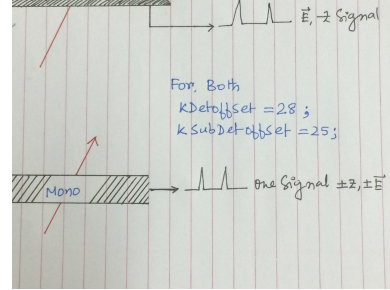 E⃗, -Z Signal
For, Both
KDetoffset = 28 ;
K SubDet-offset = 25;
Mono
one Signal ±Z, ±E⃗